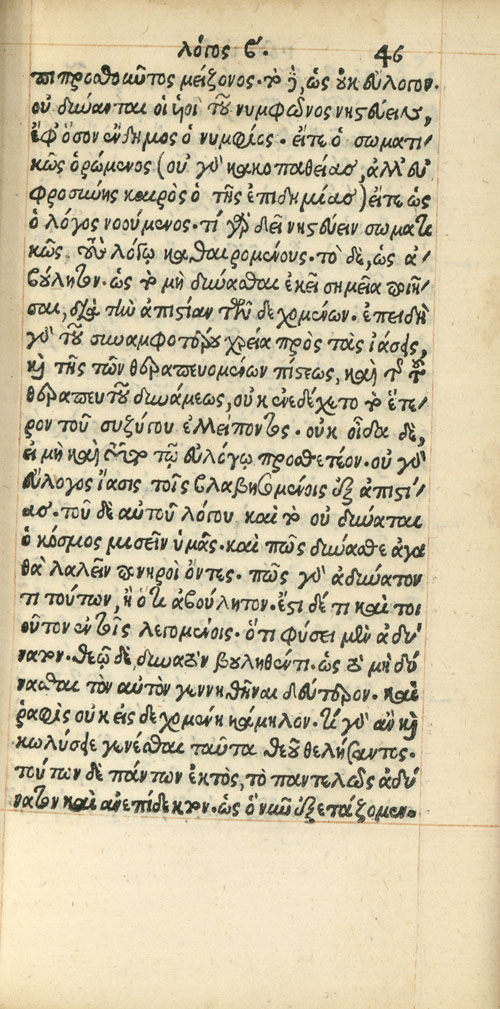 λόγος ϛ. 46
πιπροσθοῦντος μείζονος. τὸ δὲ, ὡς οὐκ εὔλογον.
οὐ δύνανται οἱ υἱοὶ τοῦ νυμφῶνος νηστεύειν,
ἐφ' ὅσον ἔνδημος ὁ νυμφίος. εἴτε ὁ σωματι-
κῶς ὁρώμενος (οὐ γὰρ κακοπαθείας, ἀλλ' εὐ
φροσύνης καιρὸς ὁ τῆς ἐπιδημίας) εἴτε ὡς
ὁ λόγος νοούμενος. τί γὰρ δεῖ νηστεύειν σωματι
κῶς τοὺς λόγῳ καθαιρομένους. τὸ δὲ, ὡς ἀ-
βούλητον. ὡς τὸ μὴ δύνασθαι ἐκεῖ σημεῖα ποιῆ-
σαι, διὰ τὴν ἀπιστίαν τῶν δεχομένων. ἐπειδὴ
γὰρ τοῦ συναμφοτέρου χρεία πρὸς τὰς ἰάσεις,
καὶ τῆς τῶν θεραπευομένων πίστεως, καὶ τῆς τοῦ
θεραπευτοῦ δυνάμεως, οὐκ ἐνεδέχετο τὸ ἕτε-
ρον τοῦ συζύγου ἐλλείποντος. οὐκ οἶδα δὲ,
εἰ μὴ καὶ τοῦτο τῷ εὐλόγῳ προσθετέον. οὐ γὰρ
εὔλογος ἴασις τοῖς βλαβησομένοις ἐξ ἀπιστί-
ας. τοῦ δὲ αὐτοῦ λόγου καὶ τὸ οὐ δύναται
ὁ κόσμος μισεῖν ὑμᾶς. καὶ πῶς δύνασθε ἀγα
θὰ λαλεῖν πονηροὶ ὄντες. πῶς γὰρ ἀδύνατον
τι τούτων, ἢ ὅτι ἀβούλητον. ἔστι δέ τι καὶ τοι
οῦτον ἐν τοῖς λεγομένοις. ὅτι φύσει μὲν ἀδύ-
νατον. θεῷ δὲ, δυνατὸν βουληθέντι. ὡς τὸ μὴ δύ
νασθαι τὸν αὐτὸν γεννηθῆναι δεύτερον. καὶ
ῥαφὶς οὐκ εἰσδεχομένη κάμηλον. τί γὰρ ἂν καὶ
κωλύσειε γενέσθαι ταῦτα θεοῦ θελήσαντος.
τούτων δὲ πάντων ἐκτὸς, τὸ παντελῶς ἀδύ
νατον καὶ ἀνεπίδεκτον. ὡς ὃ νῦν ἐξετάζομεν.